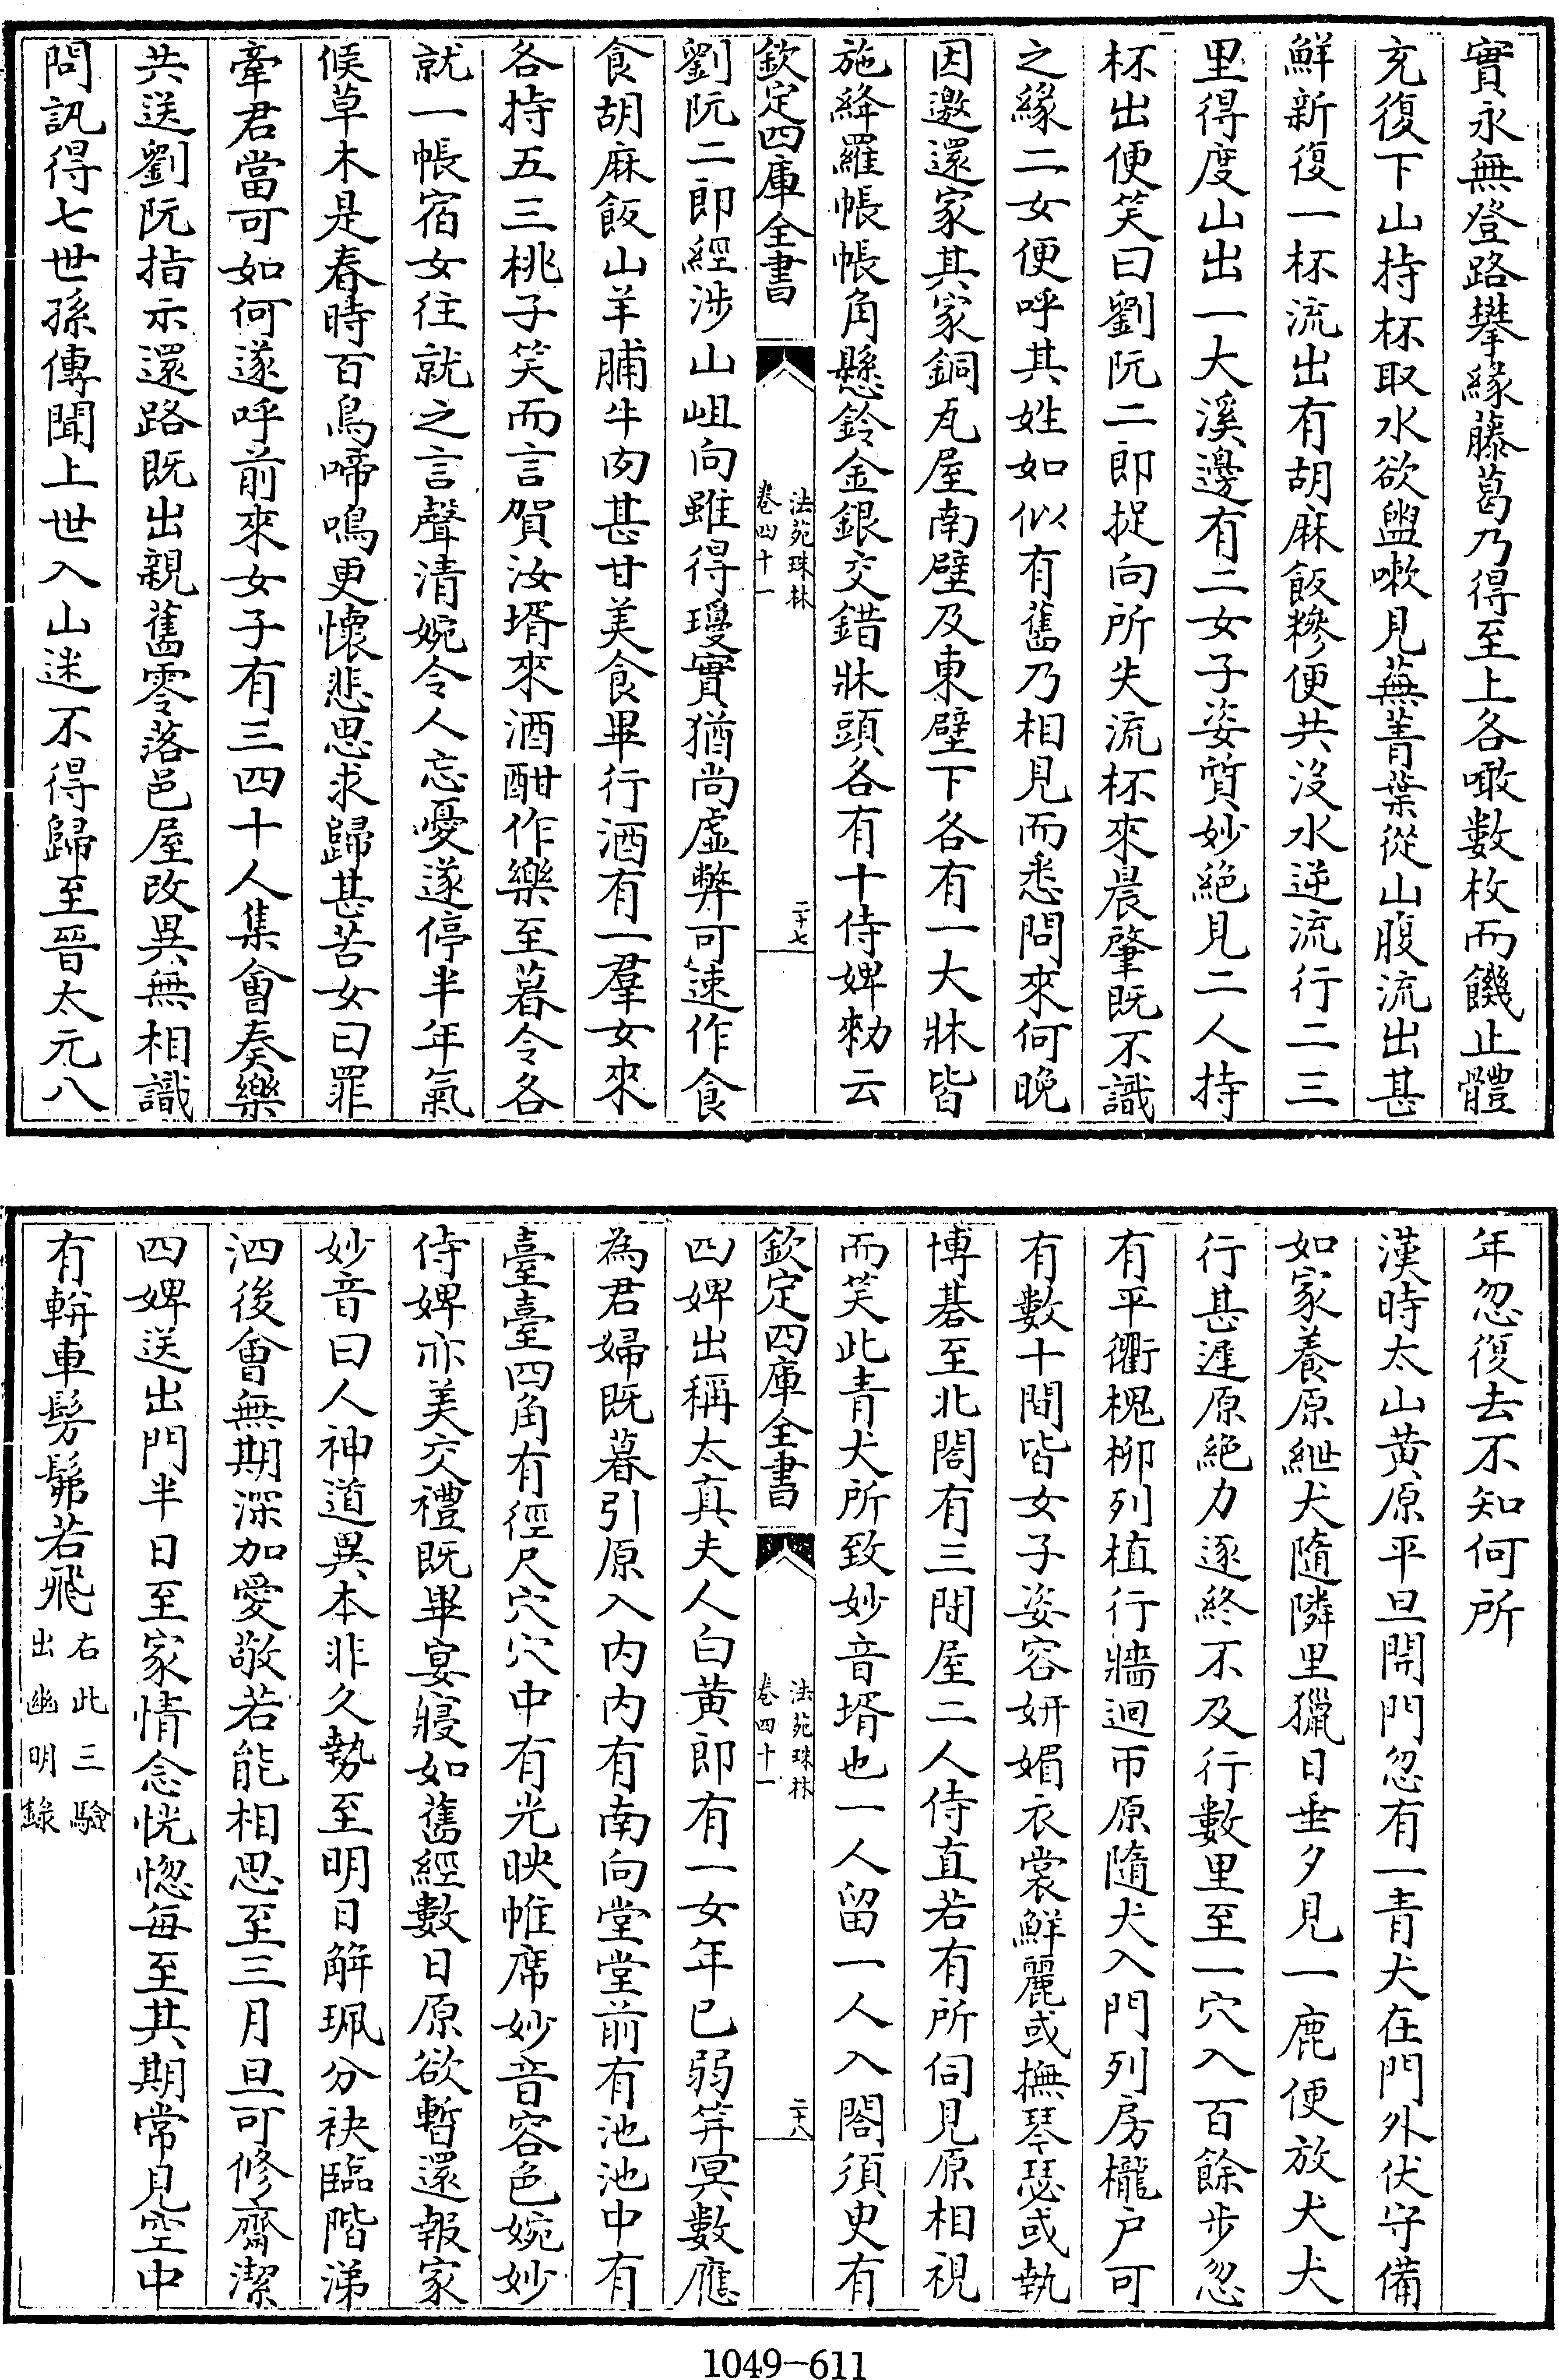 實永無登路攀緣藤葛乃得至上各噉數枚而饑止體
充復下山持杯取水欲盥嗽見蕪菁葉從山腹流出甚
鮮新復一杯流出有胡麻飯糝便共沒水逆流行二三
里得度山出一大溪邊有二女子姿質妙絕見二人持
杯出便笑曰劉阮二郎捉向所失流杯來晨肇既不識
之緣二女便呼其姓如似有舊乃相見而悉問來何晚
因邀還家其家銅瓦屋南壁及東壁下各有一大牀皆
施絳羅帳帳角懸鈴金銀交錯牀頭各有十侍婢勑云
欽定四庫全書
法苑珠林
卷四十一
二十七
劉阮二郎經涉山岨向雖得瓊實猶尚虛弊可速作食
食胡麻飯山羊脯牛肉甚甘美食畢行酒有一羣女來
各持五三桃子笑而言賀汝壻來酒酣作樂至暮令各
就一帳宿女往就之言聲清婉令人忘憂遂停半年氣
候草木是春時百鳥啼鳴更懷悲思求歸甚苦女曰罪
牽君當可如何遂呼前來女子有三四十人集會奏樂
共送劉阮指示還路既出親舊零落邑屋改異無相識
問訊得七世孫傳聞上世入山迷不得歸至晉太元八
年忽復去不知何所
漢時太山黄原平旦開門忽有一青犬在門外伏守備
如家養原紲犬隨隣里獵日垂夕見一鹿便放犬犬
行甚遲原絕力逐終不及行數里至一穴入百餘步忽
有平衢槐柳列植行牆迴帀原隨犬入門列房櫳户可
有數十間皆女子姿容妍媚衣裳鮮麗或撫琴瑟或執
博碁至北閤有三間屋二人侍直若有所伺見原相視
而笑此青犬所致妙音壻也一人留一人入閤須臾有
欽定四庫全書
法苑珠林
卷四十一
二十八
四婢出稱太真夫人白黄郎有一女年已弱笄冥數應
為君婦既暮引原入内内有南向堂堂前有池池中有
臺臺四角有徑尺穴穴中有光映帷席妙音容色婉妙
侍婢亦美交禮既畢宴寢如舊經數日原欲暫還報家
妙音曰人神道異本非久勢至明日解珮分袂臨階涕
泗後會無期深加愛敬若能相思至三月旦可修齋潔
四婢送出門半日至家情念恍惚每至其期常見空中
有輧車髣髴若飛
右此三驗
出幽明錄
1049-611